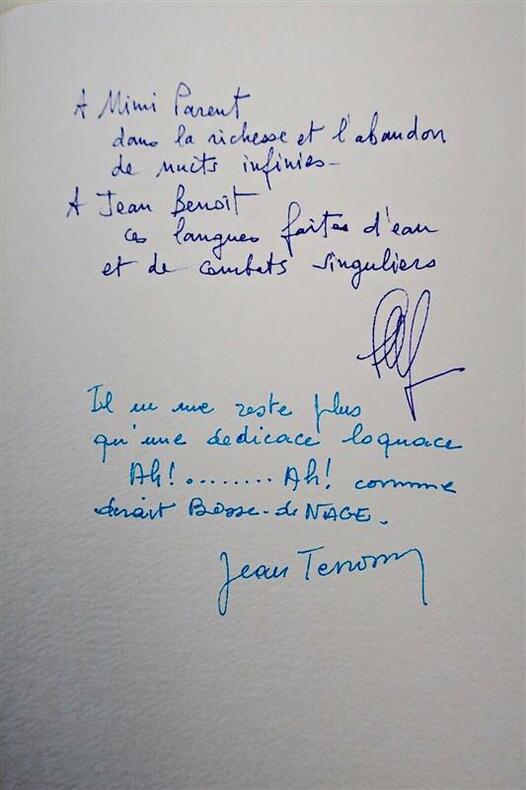 A Mimi Parent
dans la richesse et l'abandon
de nuits infinies -
A Jean Benoît
ces langues faites d'eau
et de combats singuliers
Il ne me reste plus
qu'une dedicace loquace
Ah!........Ah! comme
dirait Bosse-de NAGE.
Jean Terrossian